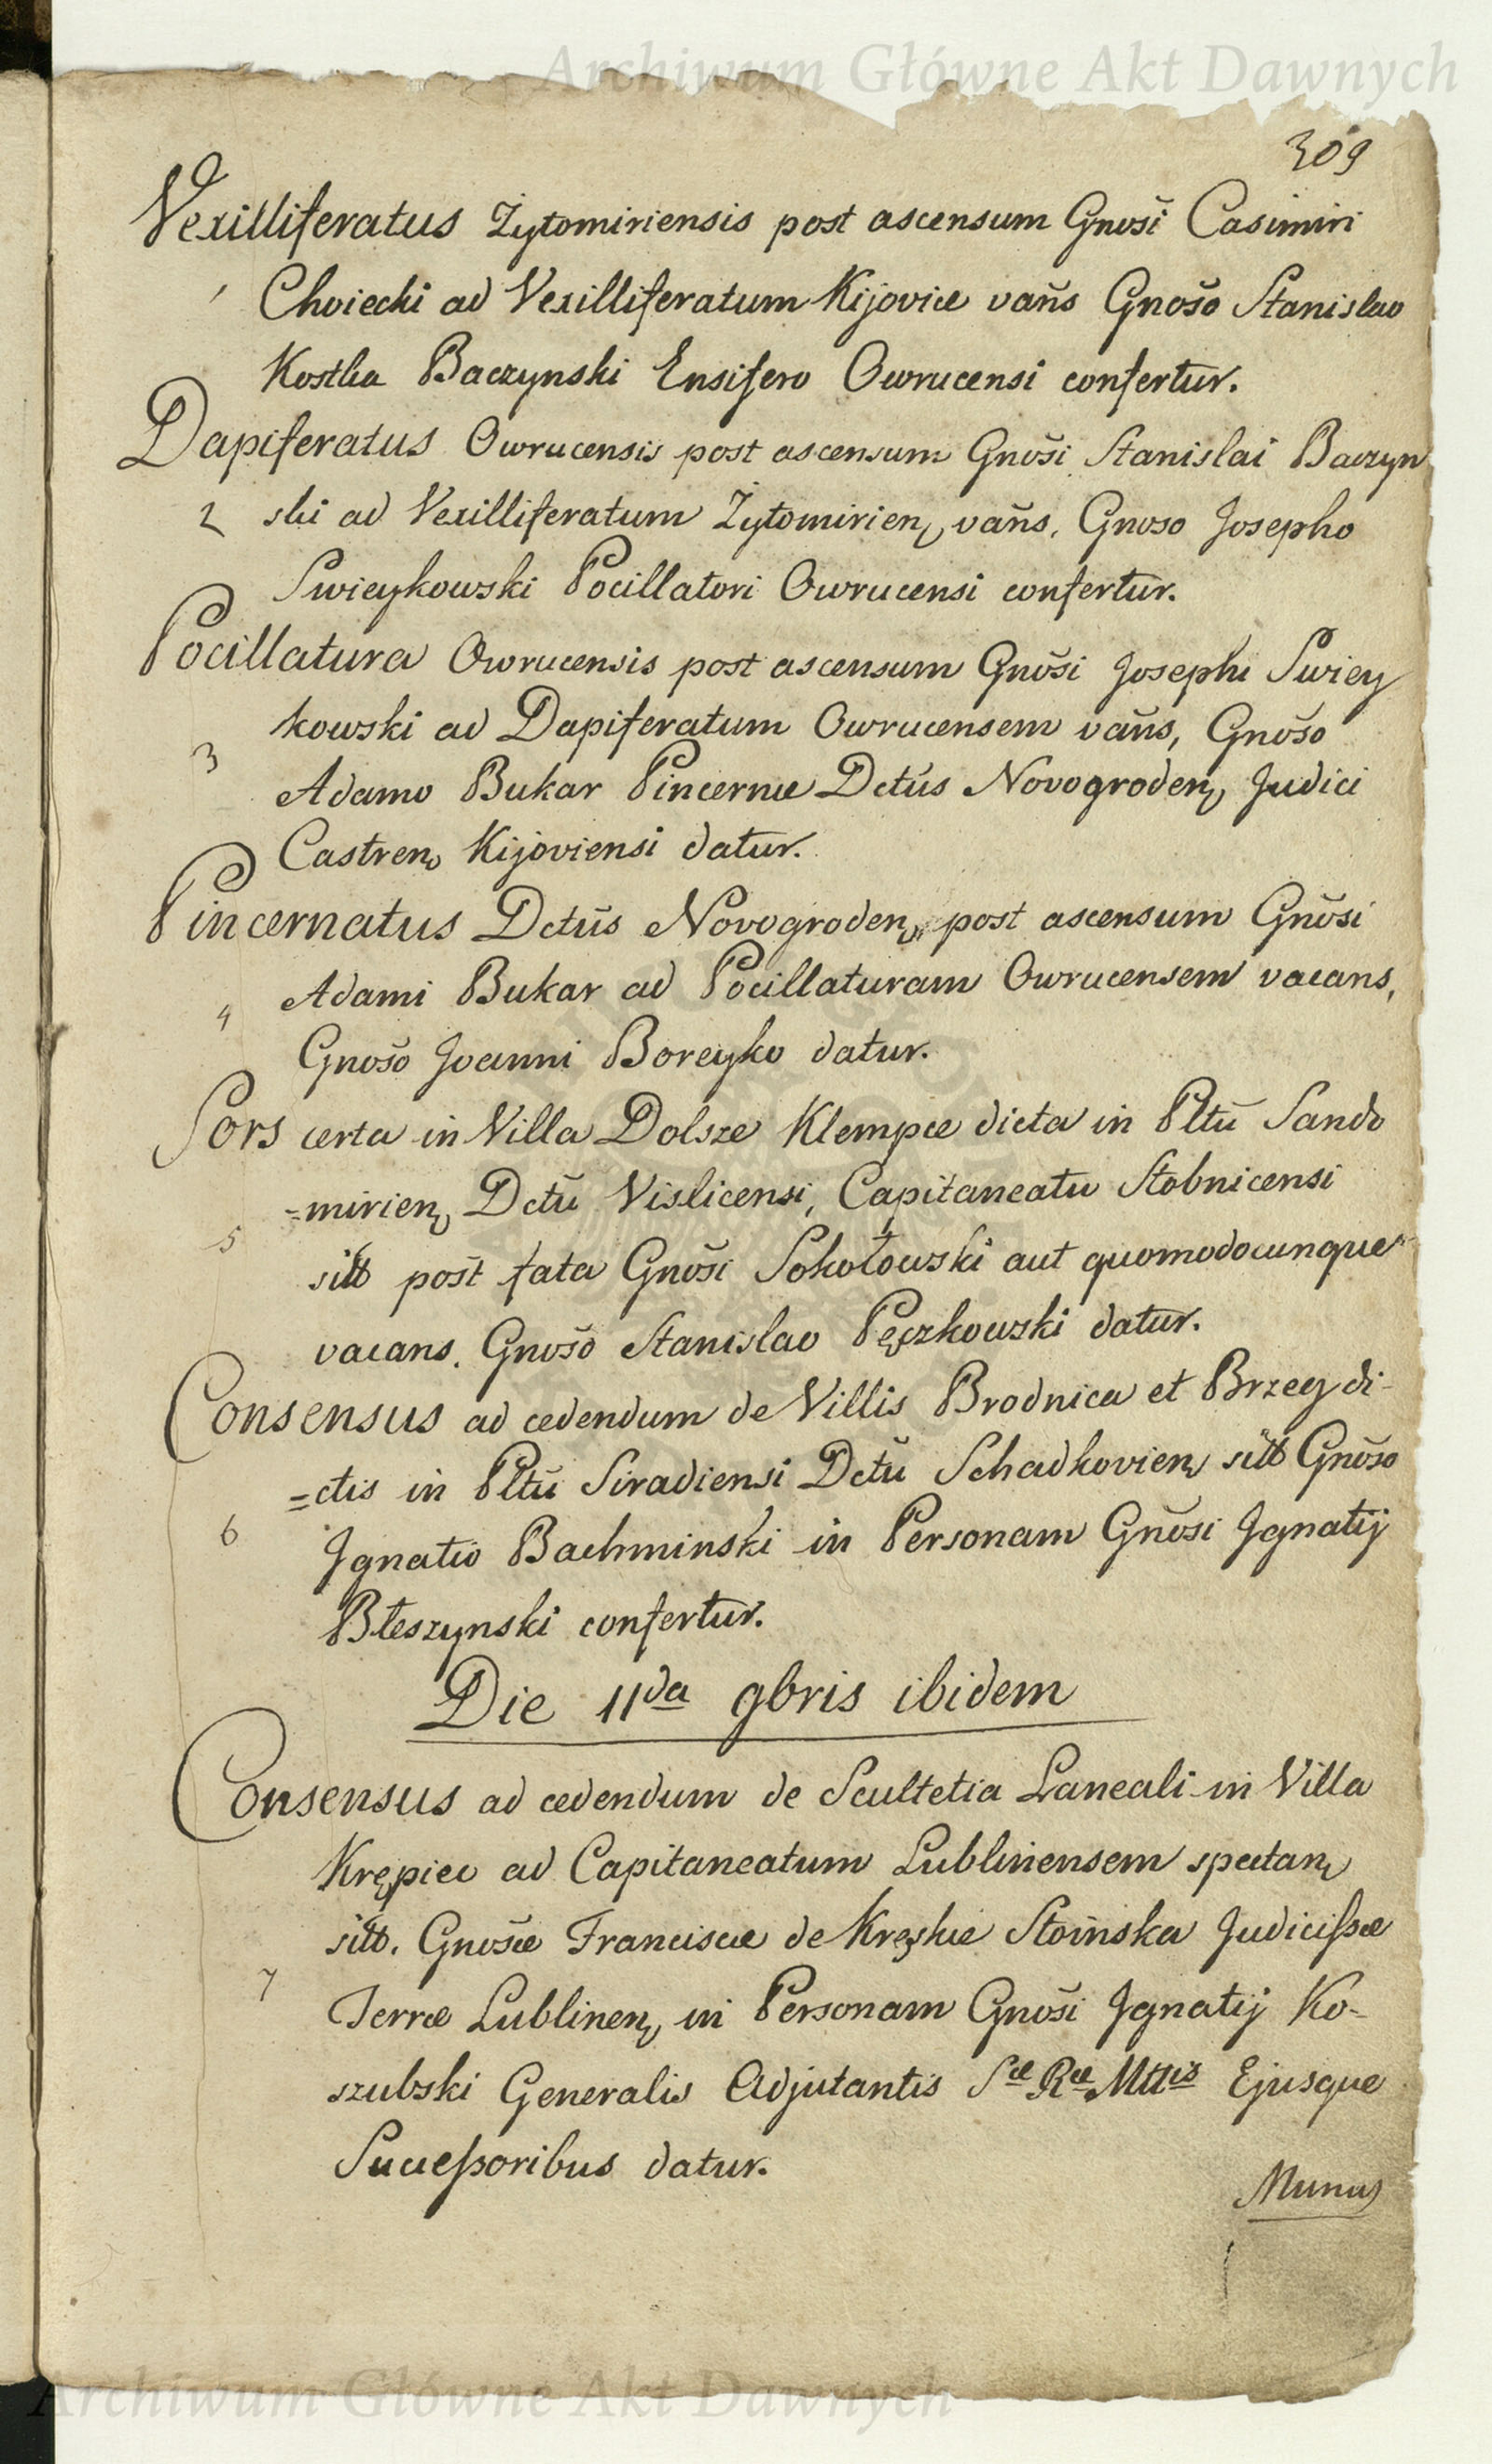 Archiwum Główne Akt Dawnych
309
Vexilliferatus Żytomiriensis post ascensum Gnosi Casimiri
1 Choiecki ad Vexilliferatum Kijoviæ vañs Gnoso Stanislao
Kostka Baczynski Ensifero Owrucensi confertur.
Dapiferatus Owrucensis post ascensum Gnosi Stanislai Baczyn
2 ski ad Vexilliferatum Żytomirien, vañs, Gnoso Josepho
Swieykowski Pocillatori Owrucensi confertur.
Pocillatura Owrucensis post ascensum Gnosi Josephi Swiey
kowski ad Dapiferatum Owrucensem vañs, Gnoso
3 Adamo Bukar Pincernæ Dctus Novogroden, Judici
Castren, Kijoviensi datur.
Pincernatus Dctus Novogroden, post ascensum Gnosi
4 Adami Bukar ad Pocillaturam Owrucensem vacans,
Gnoso Joanni Boreyko datur.
Sors certa in Villa Dolsze Klempie dicta in Pltu Sando
=mirien, Dctu Vislicensi, Capitaneatu Stobnicensi
5 sitt post fata Gnosi Sokołowski aut quomodocunque
vacans. Gnoso Stanislao Pęczkowski datur.
Consensus ad cedendum de Villis Brodnica et Brzeg di-
=ctis in Pltu Siradiensi Dctu Schadkovien, sitt Gnoso
6 Jgnatio Bachminski in Personam Gnosi Jgnatij
Błeszynski confertur.
Die 11da 9bris ibidem
Consensus ad cedendum de Scultetia Laneali in Villa
Krępiec ad Capitaneatum Lublinensem spectan,
sitt. Gnosæ Franciscæ de Kręskie Stoinska Judicissæ
7 Terræ Lublinen, in Personam Gnosi Jgnatij Ko-
szubski Generalis Adjutantis Sæ Ræ Mttis Ejusque
Successoribus datur.
Munus
Archiwum Główne Akt Dawnych